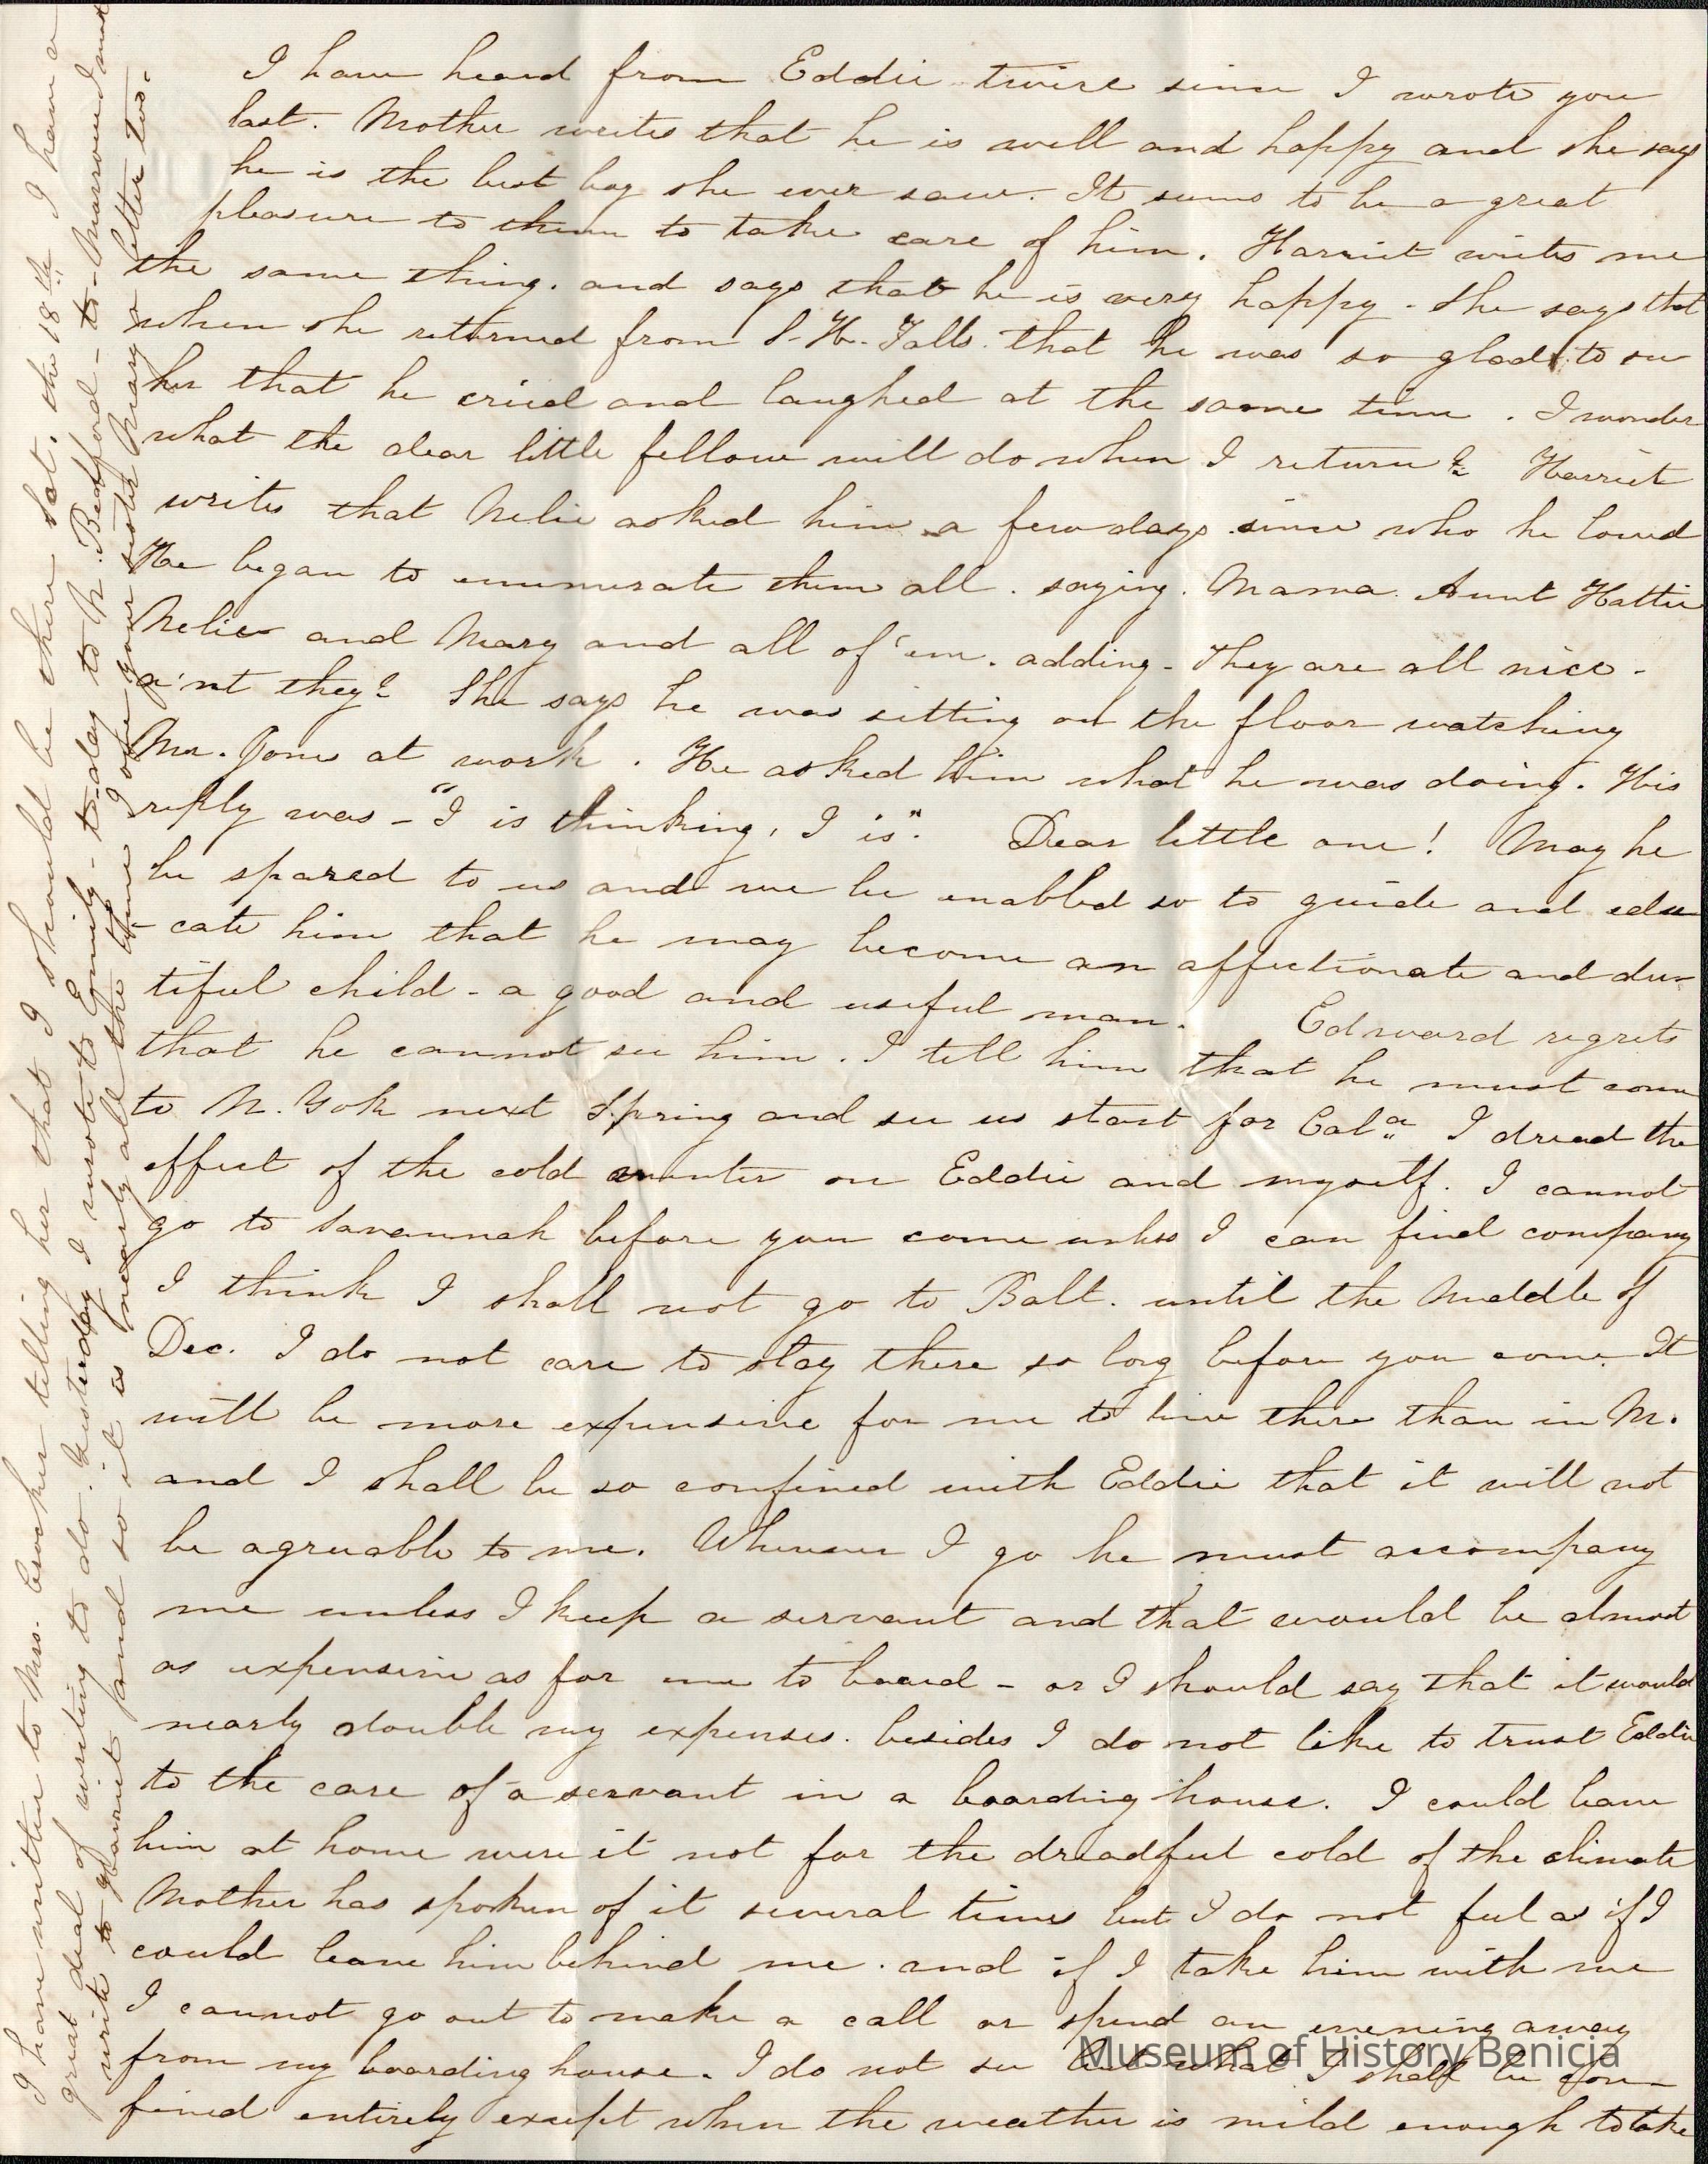 I have heard from Eddie twice since I wrote you
last. Mother writes that he is well and happy and she says
he is the best boy she ever saw. It seems to be a great
pleasure to them to take care of him. Harriet writes me
the same thing. and says that he is very happy - She says that
when she returned from S. H. Falls. that he was so glad to see
her that he cried and laughed at the same time. I wonder
what the dear little fellow will do when I return? Harriet
writes that Nelie asked him a few days since who he loved
He began to enumerate them all. saying. Mama. Aunt Hattie
Nelie and Mary and all of 'em. adding - They are all nice -
a'nt they? She says he was sitting on the floor watching
Mr. Jones at work. He asked him what he was doing. His
reply was - "I is thinking, I is". Dear little one! May he
be spared to us and we be enabled so to guide and edu
- cate him that he may become an affectionate and du-
tiful child - a good and useful man. Edward regrets
that he cannot see him. I tell him that he must come
to N. Yok next Spring and see us start for Cala. I dread the
effect of the cold winter on Eddie and myself. I cannot
go to Savannah before you come unless I can find company
I think I shall not go to Balt. until the Middle of
Dec. I do not care to stay there so long before you come. It
will be more expensive for me to live there than in M.
and I shall be so confined with Eddie that it will not
be agreeable to me. Whenever I go he must accompany
me unless I keep a servant and that would be almost
as expensive as for me to board - or I should say that it would
nearly double my expenses. besides I do not like to trust Eddie
to the care of a servant in a boarding house. I could leave
him at home were it not for the dreadful cold of the climate
Mother has spoken of it several times but I do not feel as if I
could leave him behind me. and if I take him with me
I cannot go out to make a call or spend an evening away
from my boarding house. I do not see but what I shall be con-
fined entirely except when the weather is mild enough to take
I have written to Mrs. telling her that I should be there Sat. the 18th I have a
great deal of writing to do. Yesterday I wrote to Emily - to-day to N. Bedford - to-morrow I must
write to Harriet and so it is nearly all the time I owe your sister Mary a letter too.
Museum of History Benicia